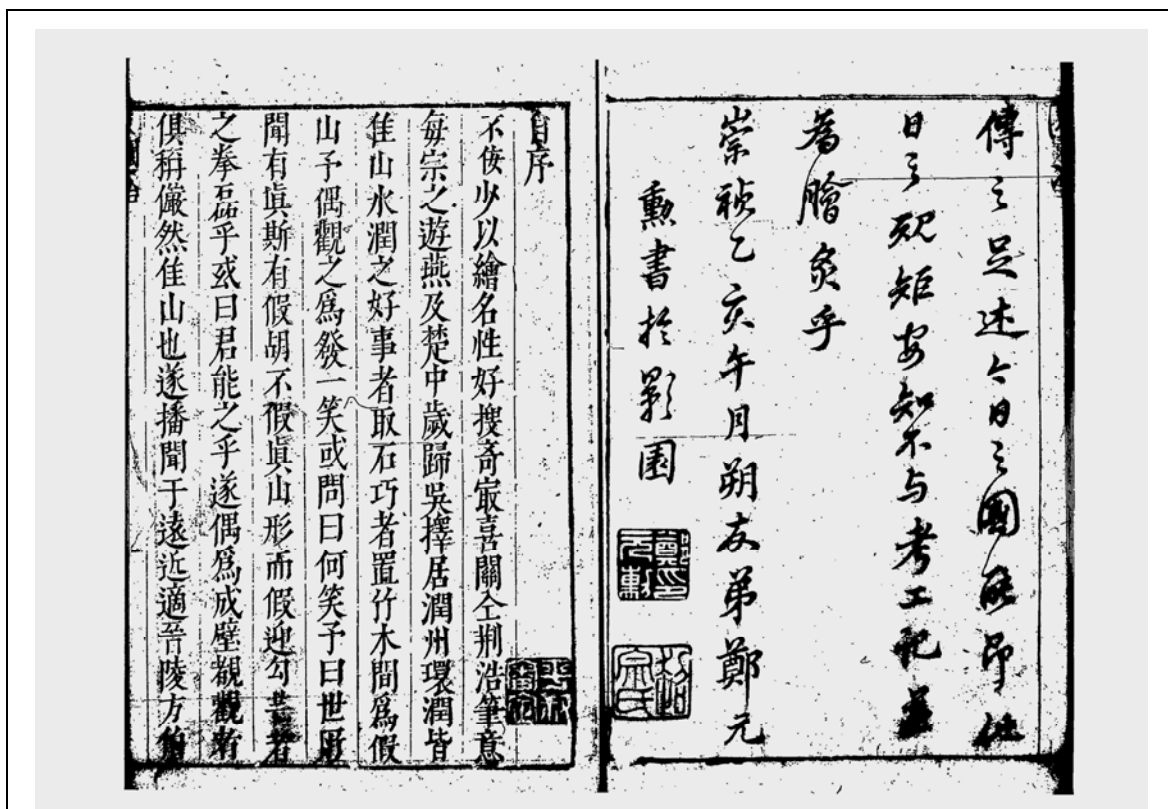 傳之足述今日之國能即他
日之䂓矩安知不与考工記並
為膾炙乎
崇禎乙亥午月朔友弟鄭元
勳書於影園
自序
不佞少以繪名性好搜奇㝡喜關仝荆浩筆意
每宗之遊燕及楚中歲歸吳擇居潤州環潤皆
佳山水潤之好事者取石巧者置竹木間爲假
山予偶觀之爲發一笑或問曰何笑予曰世所
聞有眞斯有假胡不假眞山形而假迎勾芒者
之拳磊乎或曰君能之乎遂偶爲成壁覩觀者
俱稱儼然佳山也遂播聞于遠近適晉陵方伯